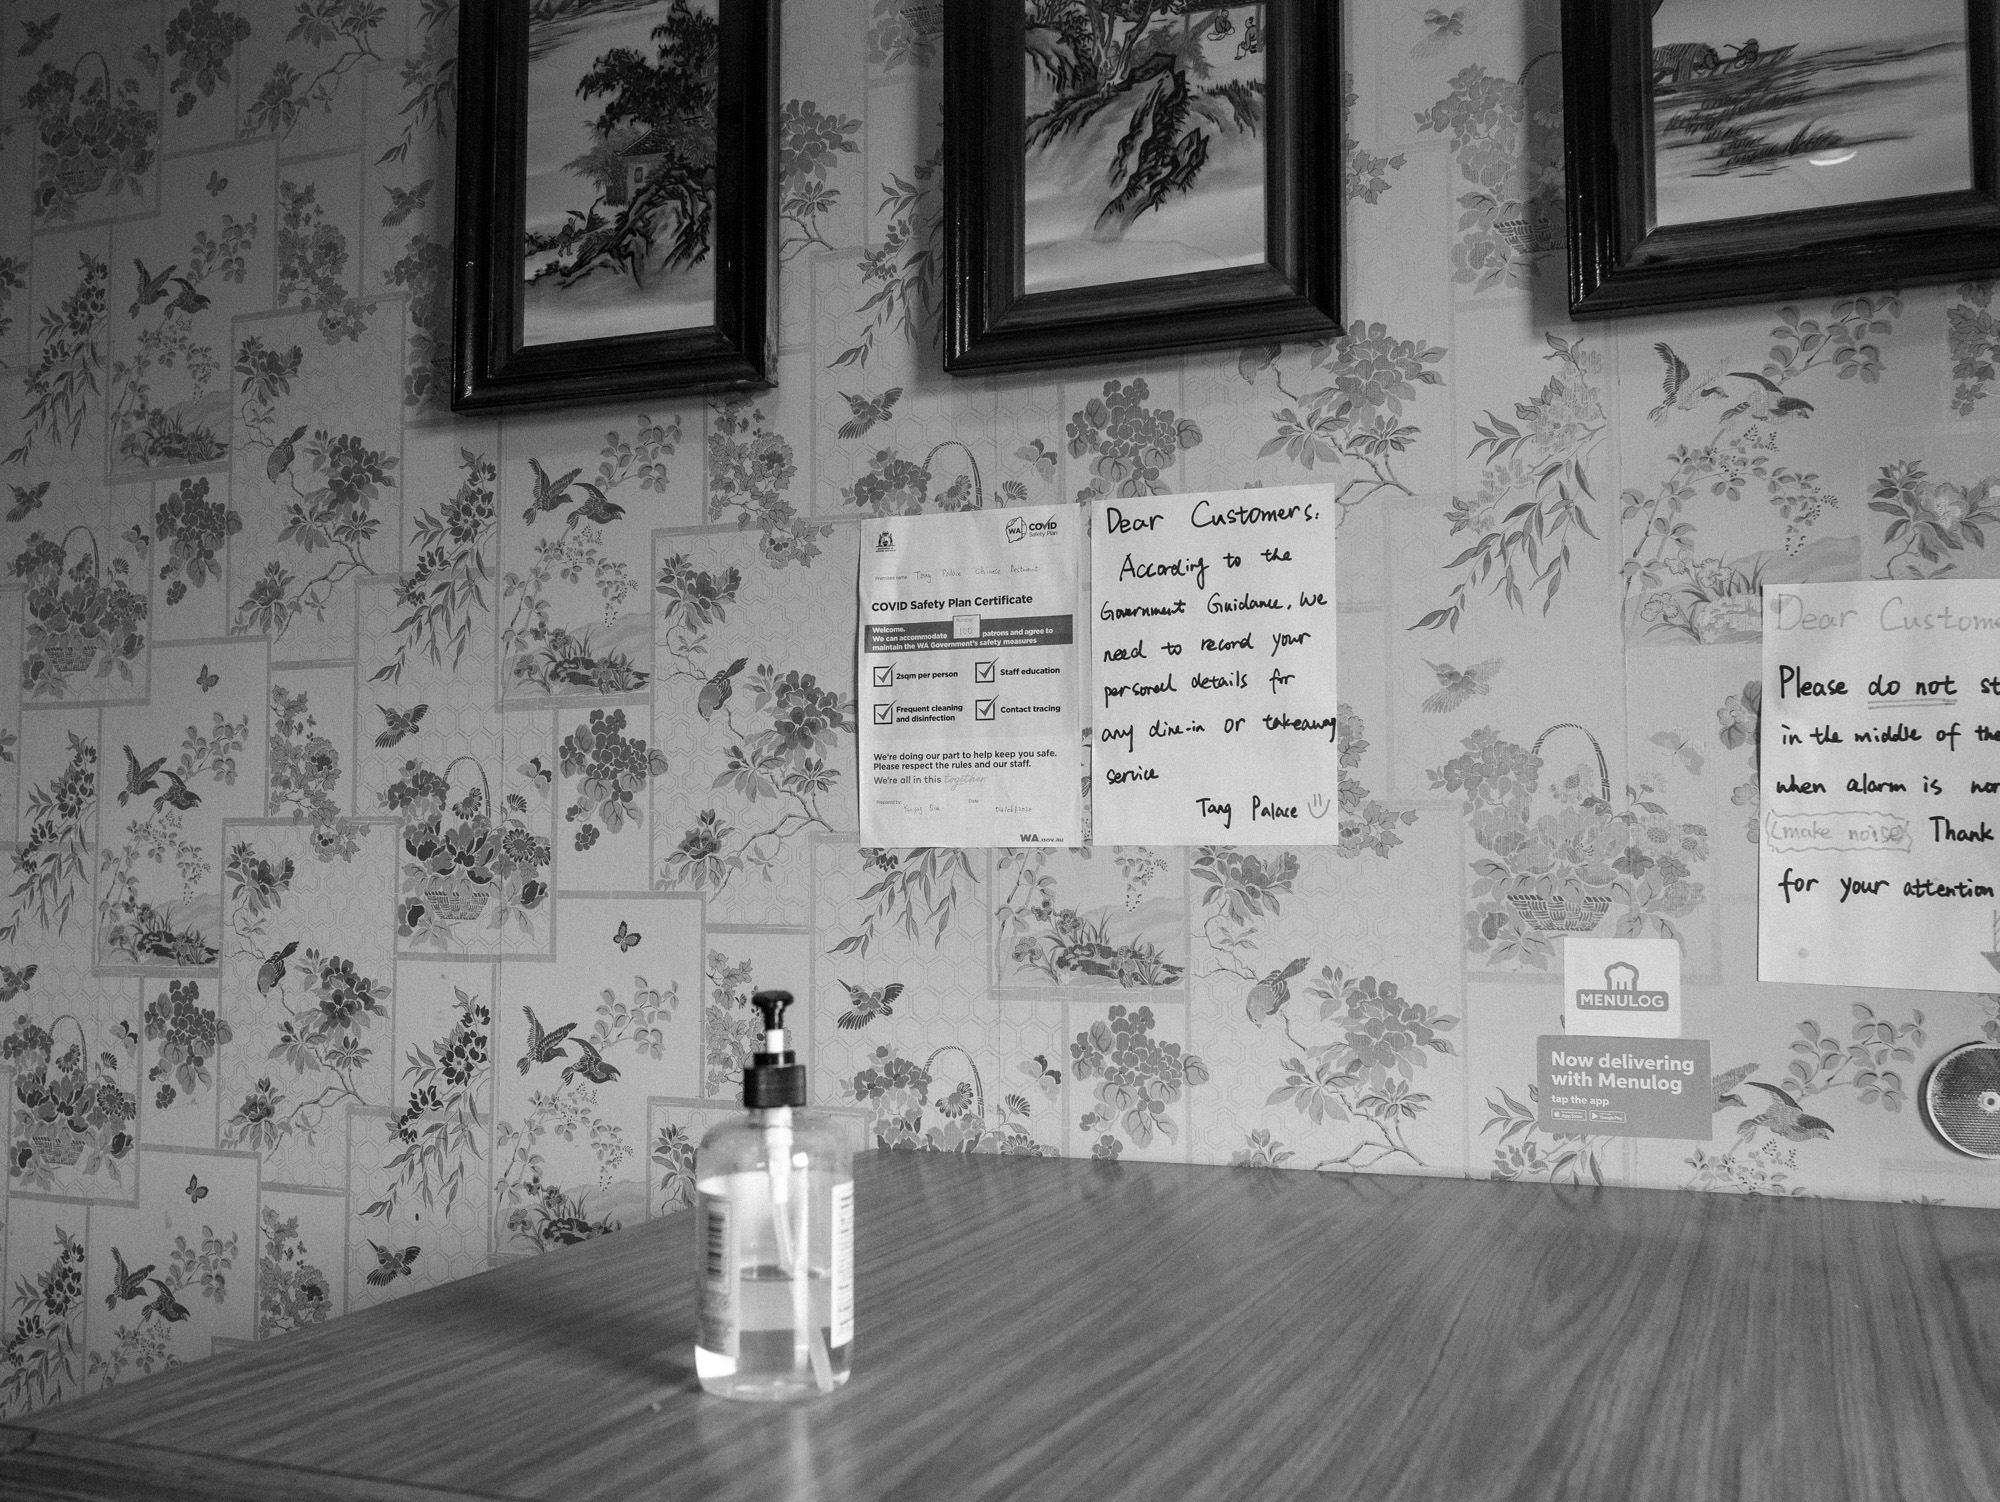 WA
COVID
Safety Plan
Premises name Tang Palace Chinese Restaurant
COVID Safety Plan Certificate
Welcome.
We can accommodate 100 patrons and agree to
maintain the WA Government's safety measures
2sqm per person
Staff education
Frequent cleaning
and disinfection
Contact tracing
We're doing our part to help keep you safe.
Please respect the rules and our staff.
We're all in this together.
Prepared by
Date
WA.gov.au
Dear Customers:
According to the
Government Guidance, We
need to record your
personal details for
any dine-in or takeaway
service
Tang Palace
Dear Custome
Please do not st
in the middle of the
when alarm is
(make noise) Thank
for your attention
MENULOG
Now delivering
with Menulog
tap the app
App Store
Google Play